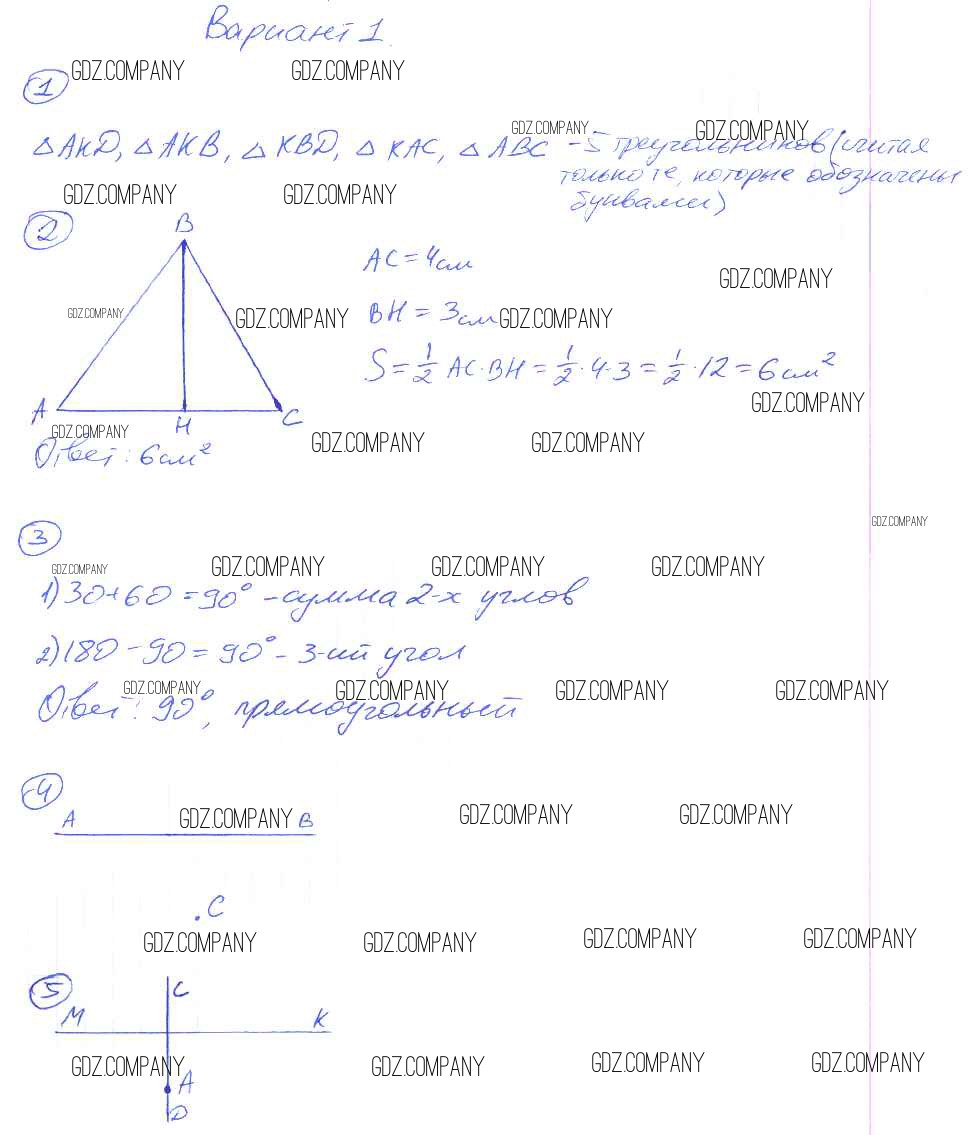 Вариант 1.
GDZ.COMPANY GDZ.COMPANY
1
GDZ.COMPANY GDZ.COMPANY
△AKD, △AKB, △KBD, △KAC, △ABC - 5 треугольников (считая
только те, которые обозначены
GDZ.COMPANY GDZ.COMPANY
буквами)
2
B
AC = 4см
GDZ.COMPANY
GDZ.COMPANY GDZ.COMPANY BH = 3см GDZ.COMPANY
S = 1/2 AC·BH = 1/2·4·3 = 1/2·12 = 6см²
GDZ.COMPANY
A H C
GDZ.COMPANY GDZ.COMPANY GDZ.COMPANY
Ответ: 6см²
GDZ.COMPANY
3
GDZ.COMPANY GDZ.COMPANY GDZ.COMPANY GDZ.COMPANY
1) 30+60 = 90° - сумма 2-х углов
2) 180 - 90 = 90° - 3-ий угол
GDZ.COMPANY GDZ.COMPANY GDZ.COMPANY GDZ.COMPANY
Ответ: 90°, прямоугольный
4
A GDZ.COMPANY B GDZ.COMPANY GDZ.COMPANY
.C
GDZ.COMPANY GDZ.COMPANY GDZ.COMPANY GDZ.COMPANY
5
C
M K
GDZ.COMPANY GDZ.COMPANY GDZ.COMPANY GDZ.COMPANY
A
D